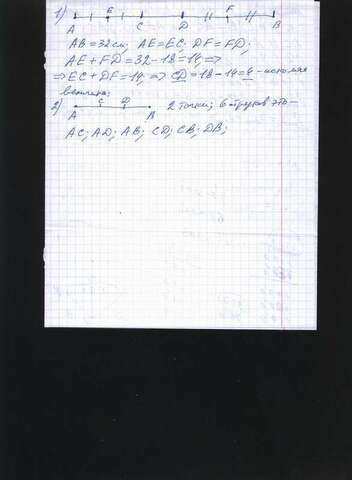 1) E F
A C D B
AB = 32 см; AE = EC; DF = FD;
AE + FD = 32 - 18 = 14, =>
=> EC + DF = 14, => CD = 18 - 14 = 4 - искомая
величина;
2) C D 2 точки; 6 отрезков это -
A B
AC; AD; AB; CD; CB; DB;